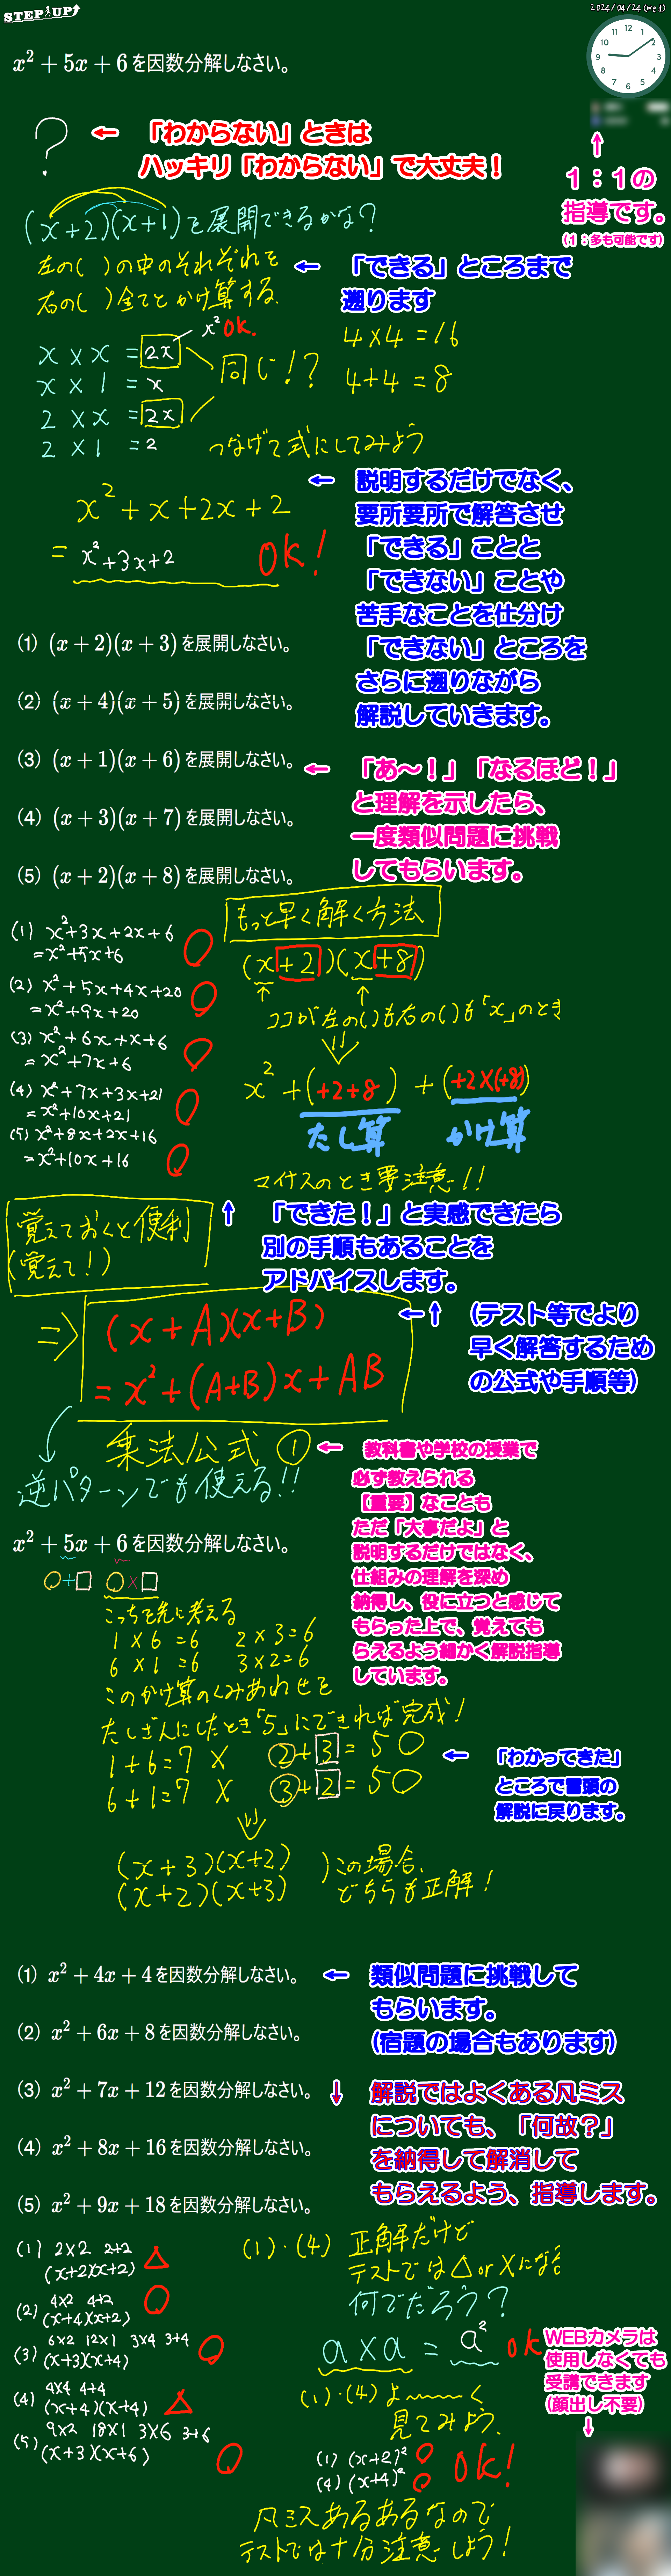 STEP UP
2024/04/24 (Wed)
12 1 2 3 4 5 6 7 8 9 10 11
x² + 5x + 6 を因数分解しなさい。
?
← 「わからない」ときは
ハッキリ「わからない」で大丈夫！
↑
1：1の
指導です。
(1：多も可能です)
(x+2)(x+1)を展開できるかな？
左の( )の中のそれぞれを
右の( )全てとかけ算する.
← 「できる」ところまで
遡ります
x² OK.
x × x = 2x
x × 1 = x
2 × x = 2x
2 × 1 = 2
同じ!?
4×4=16
4+4=8
つなげて式にしてみよう
x²+x+2x+2
= x²+3x+2
OK!
← 説明するだけでなく、
要所要所で解答させ
「できる」ことと
「できない」ことや
苦手なことを仕分け
「できない」ところを
さらに遡りながら
解説していきます。
(1) (x + 2)(x + 3) を展開しなさい。
(2) (x + 4)(x + 5) を展開しなさい。
(3) (x + 1)(x + 6) を展開しなさい。
(4) (x + 3)(x + 7) を展開しなさい。
(5) (x + 2)(x + 8) を展開しなさい。
← 「あ～！」「なるほど！」
と理解を示したら、
一度類似問題に挑戦
してもらいます。
(1) x²+3x+2x+6
=x²+5x+6
(2) x²+5x+4x+20
=x²+9x+20
(3) x²+6x+x+6
=x²+7x+6
(4) x²+7x+3x+21
=x²+10x+21
(5) x²+8x+2x+16
=x²+10x+16
もっと早く解く方法
(x+2)(x+8)
↑ ↑
ココが左の()も右の()も「x」のとき
x²+(+2+8)+(+2×(+8))
たし算 かけ算
マイナスのとき要注意!!
覚えておくと便利
(覚えて!)
↑ 「できた！」と実感できたら
別の手順もあることを
アドバイスします。
⇒ (x+A)(x+B)
=x²+(A+B)x+AB
←↑ (テスト等でより
早く解答するため
の公式や手順等)
乗法公式 ①
逆パターンでも使える!!
← 教科書や学校の授業で
必ず教えられる
【重要】なことも
ただ「大事だよ」と
説明するだけではなく、
仕組みの理解を深め
納得し、役に立つと感じて
もらった上で、覚えても
らえるよう細かく解説指導
しています。
x² + 5x + 6 を因数分解しなさい。
○+□ ○×□
こっちを先に考える
1×6=6 2×3=6
6×1=6 3×2=6
このかけ算のくみあわせを
たしざんにしたとき「5」にできれば完成!
1+6=7 × ②+3=5 ○
6+1=7 × ③+2=5 ○
← 「わかってきた」
ところで冒頭の
解説に戻ります。
(x+3)(x+2)
(x+2)(x+3)
)この場合、
どちらも正解！
(1) x² + 4x + 4 を因数分解しなさい。
(2) x² + 6x + 8 を因数分解しなさい。
(3) x² + 7x + 12 を因数分解しなさい。
(4) x² + 8x + 16 を因数分解しなさい。
(5) x² + 9x + 18 を因数分解しなさい。
← 類似問題に挑戦して
もらいます。
(宿題の場合もあります)
↓ 解説ではよくある凡ミス
についても、「何故？」
を納得して解消して
もらえるよう、指導します。
(1) 2×2 2+2
(x+2)(x+2) △
(2) 4×2 4+2
(x+4)(x+2) ○
(3) 6×2 12×1 3×4 3+4
(x+3)(x+4) ○
(4) 4×4 4+4
(x+4)(x+4) △
(5) 9×2 18×1 3×6 3+6
(x+3)(x+6) ○
(1)・(4) 正解だけど
テストでは△or×になる
何でだろう？
a×a = a² OK
(1)・(4)よ〜〜く
見てみよう.
(1) (x+2)² ○
(4) (x+4)² ○
OK!
凡ミスあるあるなので
テストでは十分注意しよう！
WEBカメラは
使用しなくても
受講できます
(顔出し不要)
↓